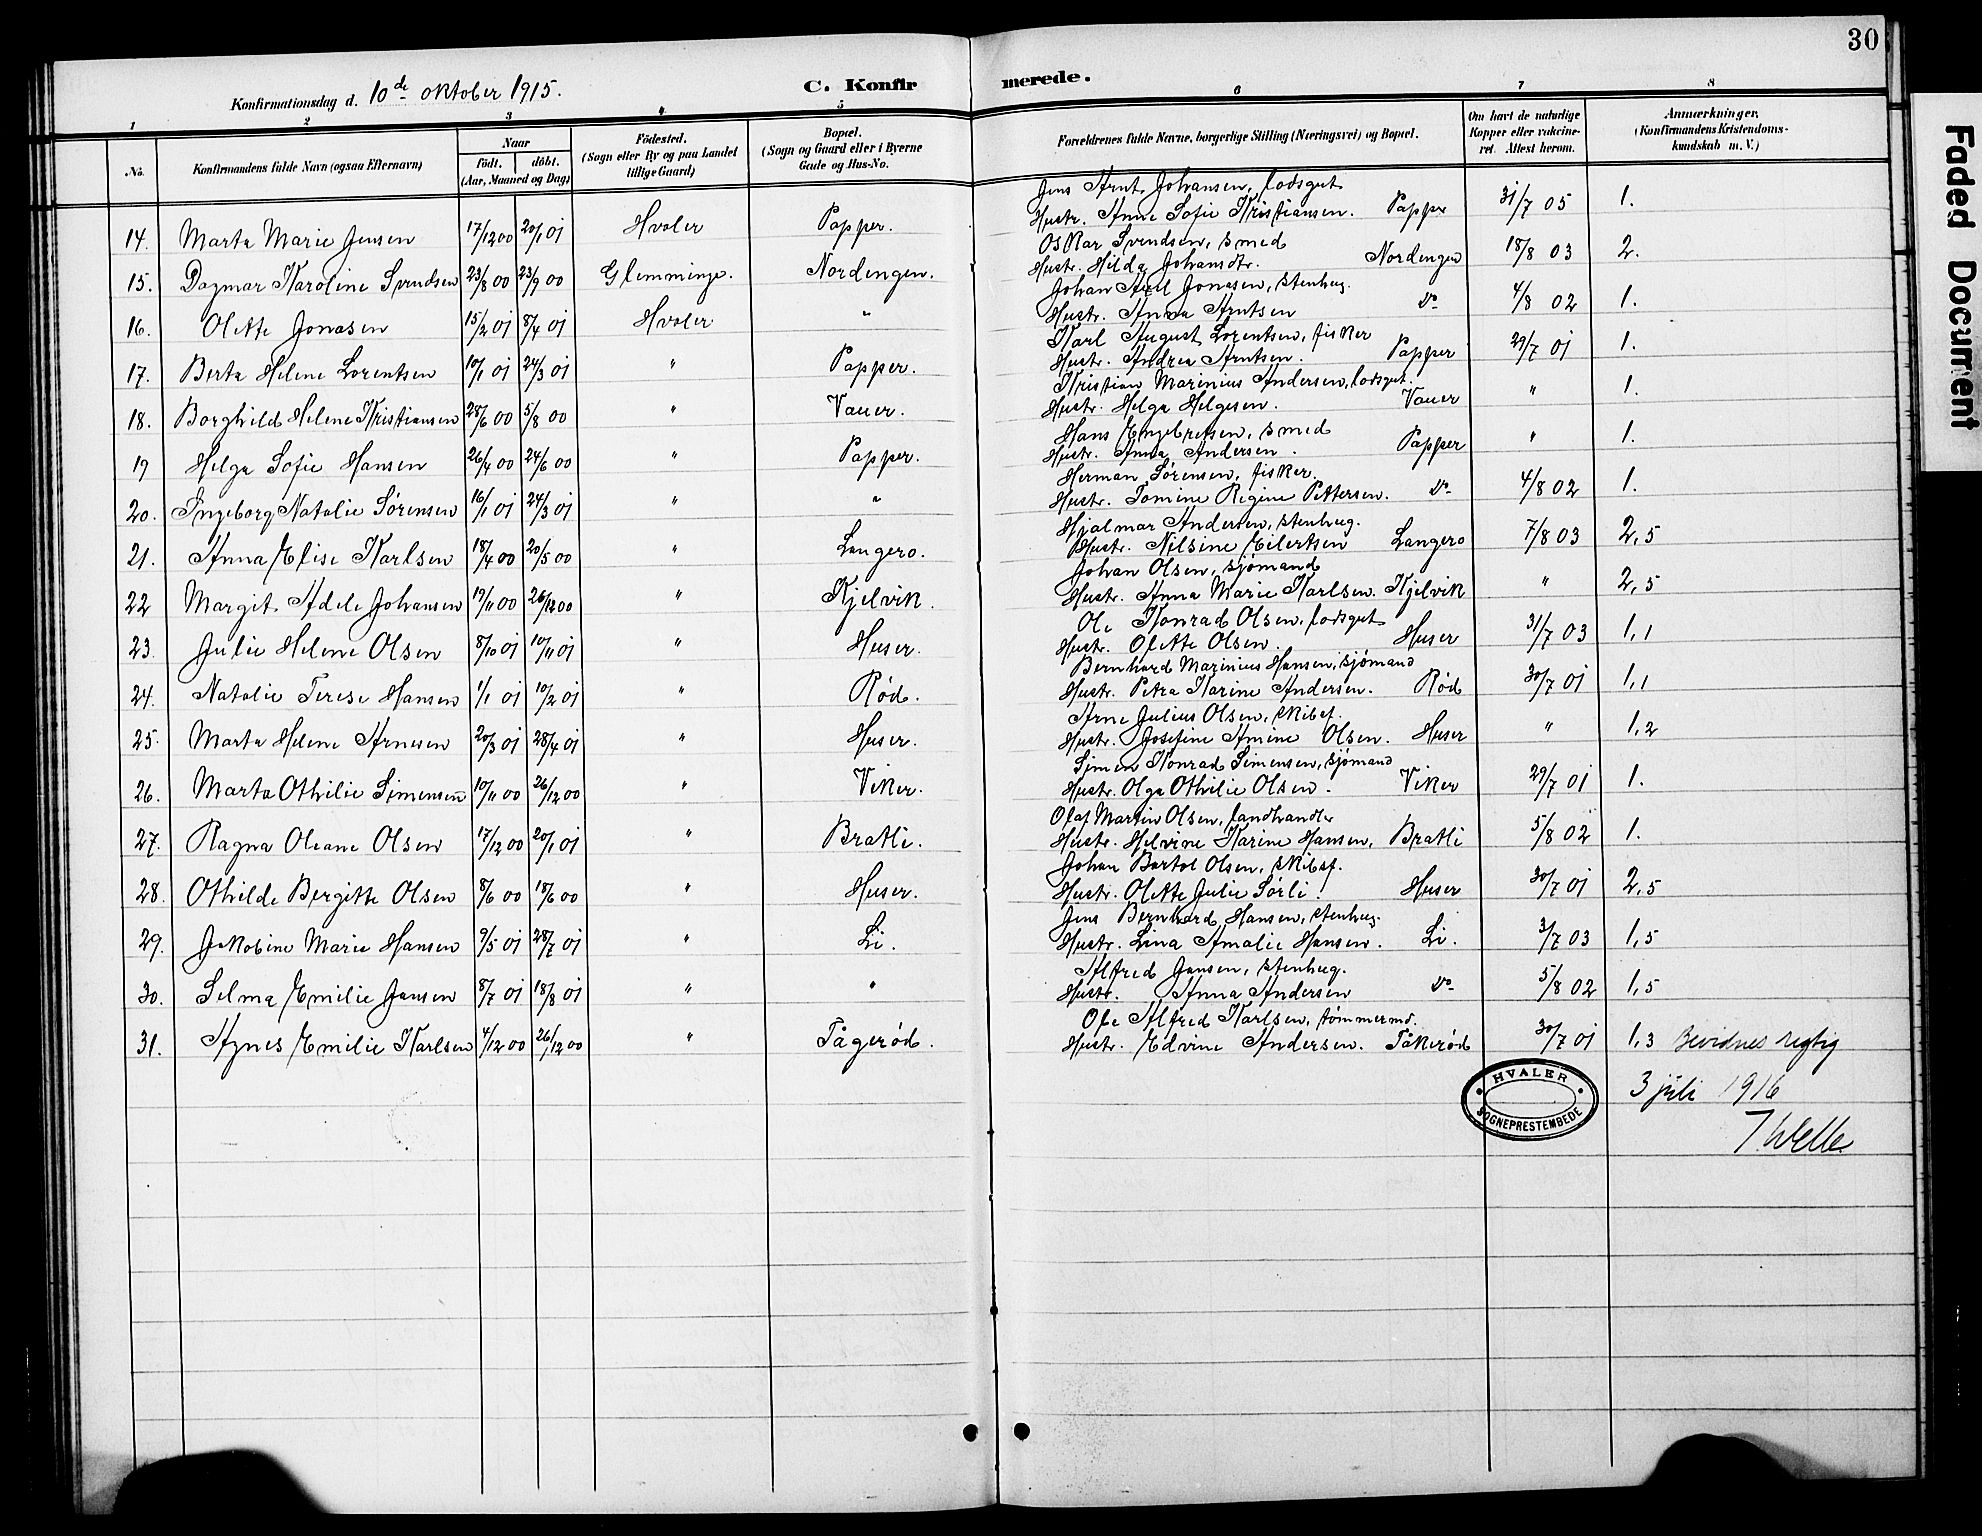 30
Konfirmationsdag d. 10de oktober 1915.
C. Konfirmerede.
1 2 3 4 5 6 7 8
No.
Konfirmandens fulde Navn (ogsaa Efternavn)
Naar
födt. döbt.
(Aar, Maaned og Dag)
Födested.
(Sogn eller By og paa Landet
tillige Gaard)
Bopæl.
(Sogn og Gaard eller i Byerne
Gade og Hus-No.
Forældrenes fulde Navne, borgerlige Stilling (Næringsvei) og Bopæl.
Om havt de naturlige
Kopper eller vakcine-
ret. Attest herom.
Anmærkninger.
(Konfirmandens Kristendoms-
kundskab m. V.)
Jens Arnt Johansen, lodsgut
14. Marta Marie Jensen 17/12 00 20/1 01 Hvaler Papper. Hustr. Anne Sofie Kristiansen. Papper 31/7 05 1.
Oskar Svendsen, smed
15. Dagmar Karoline Svendsen 23/8 00 23/9 00 Glemminge. Nordengen. Hustr. Hilda Johansdtr. Nordengen 18/8 03 2.
Johan Axel Jonasen, stenhug.
16. Olette Jonasen 15/2 01 8/4 01 Hvaler " Hustr. Anna Arntsen do 4/8 02 1.
Karl August Lorentsen, fisker
17. Berta Helene Lorentsen 10/1 01 24/3 01 " Papper. Hustr. Andrea Arntsen. Papper 29/7 01 1.
Kristian Marinius Andersen, lodsgut.
18. Borghild Helene Kristiansen 28/6 00 5/8 00 " Vauer. Hustr. Helga Helgesen. Vauer " 1.
Hans Engebretsen, smed
19 Helga Sofie Hansen 26/4 00 24/6 00 " Papper. Hustr. Anna Andersen. Papper " 1.
Herman Sørensen, fisker.
20. Ingeborg Natalie Sørensen 16/1 01 24/3 01 " " Hustr. Tomine Regine Pettersen. do 4/8 02 1.
Hjalmar Andersen, stenhug.
21. Anna Elise Karlsen 18/4 00 20/5 00 " Langero. Hustr. Nilsine Eilertsen Langero 7/8 03 2,5
Johan Olsen, sjømand
22 Margit Adele Johansen 19/11 00 26/12 00 " Kjelvik. Hustr. Anna Marie Karlsen. Kjelvik " 2,5
Ole Konrad Olsen, lodsgut
23. Julie Helene Olsen 8/10 01 10/11 01 " Huser. Hustr. Olette Olsen. Huser 31/7 03 1,1
Bernhard Marinius Hansen, sjømand
24. Natalie Terese Hansen 1/1 01 10/2 01 " Rød. Hustr. Petra Karine Andersen. Rød 30/7 01 1,1
Arne Julius Olsen, skibsf.
25. Marta Helene Arnesen 20/3 01 28/4 01 " Huser. Hustr. Josefine Amine Olsen. Huser " 1,2
Simen Konrad Simensen, sjømand
26. Marta Othilie Simensen 10/11 00 26/12 00 " Viker. Hustr. Olga Othilie Olsen. Viker 29/7 01 1.
Olaf Martin Olsen, landhandler
27. Ragna Oleane Olsen 17/12 00 20/1 01 " Bratli. Hustr. Helvine Karine Hansen, Bratli 5/8 02 1.
Johan Bartol Olsen, skibsf.
28. Othilde Bergitte Olsen 8/6 00 18/6 00 " Huser. Hustr. Olette Julie Sørli. Huser 30/7 01 2,5
Jens Bernhard Hansen, stenhug.
29. Jakobine Marie Hansen 9/5 01 28/7 01 " Li. Hustr. Lina Amalie Hansen. Li. 3/7 03 1,5
Alfred Jansen, stenhug.
30. Selma Emilie Jansen 8/7 01 18/8 01 " " Hustr. Anna Andersen do 5/8 02 1,5
Ole Alfred Karlsen, tømmermd.
31. Agnes Emilie Karlsen 4/12 00 26/12 00 " Tågerød. Hustr. Edvine Andersen. Tåkerød 30/7 01 1,3 Bevidnes rigtig
HVALER SOGNEPRESTEMBEDE
3 juli 1916
T. Welle.
Faded Document